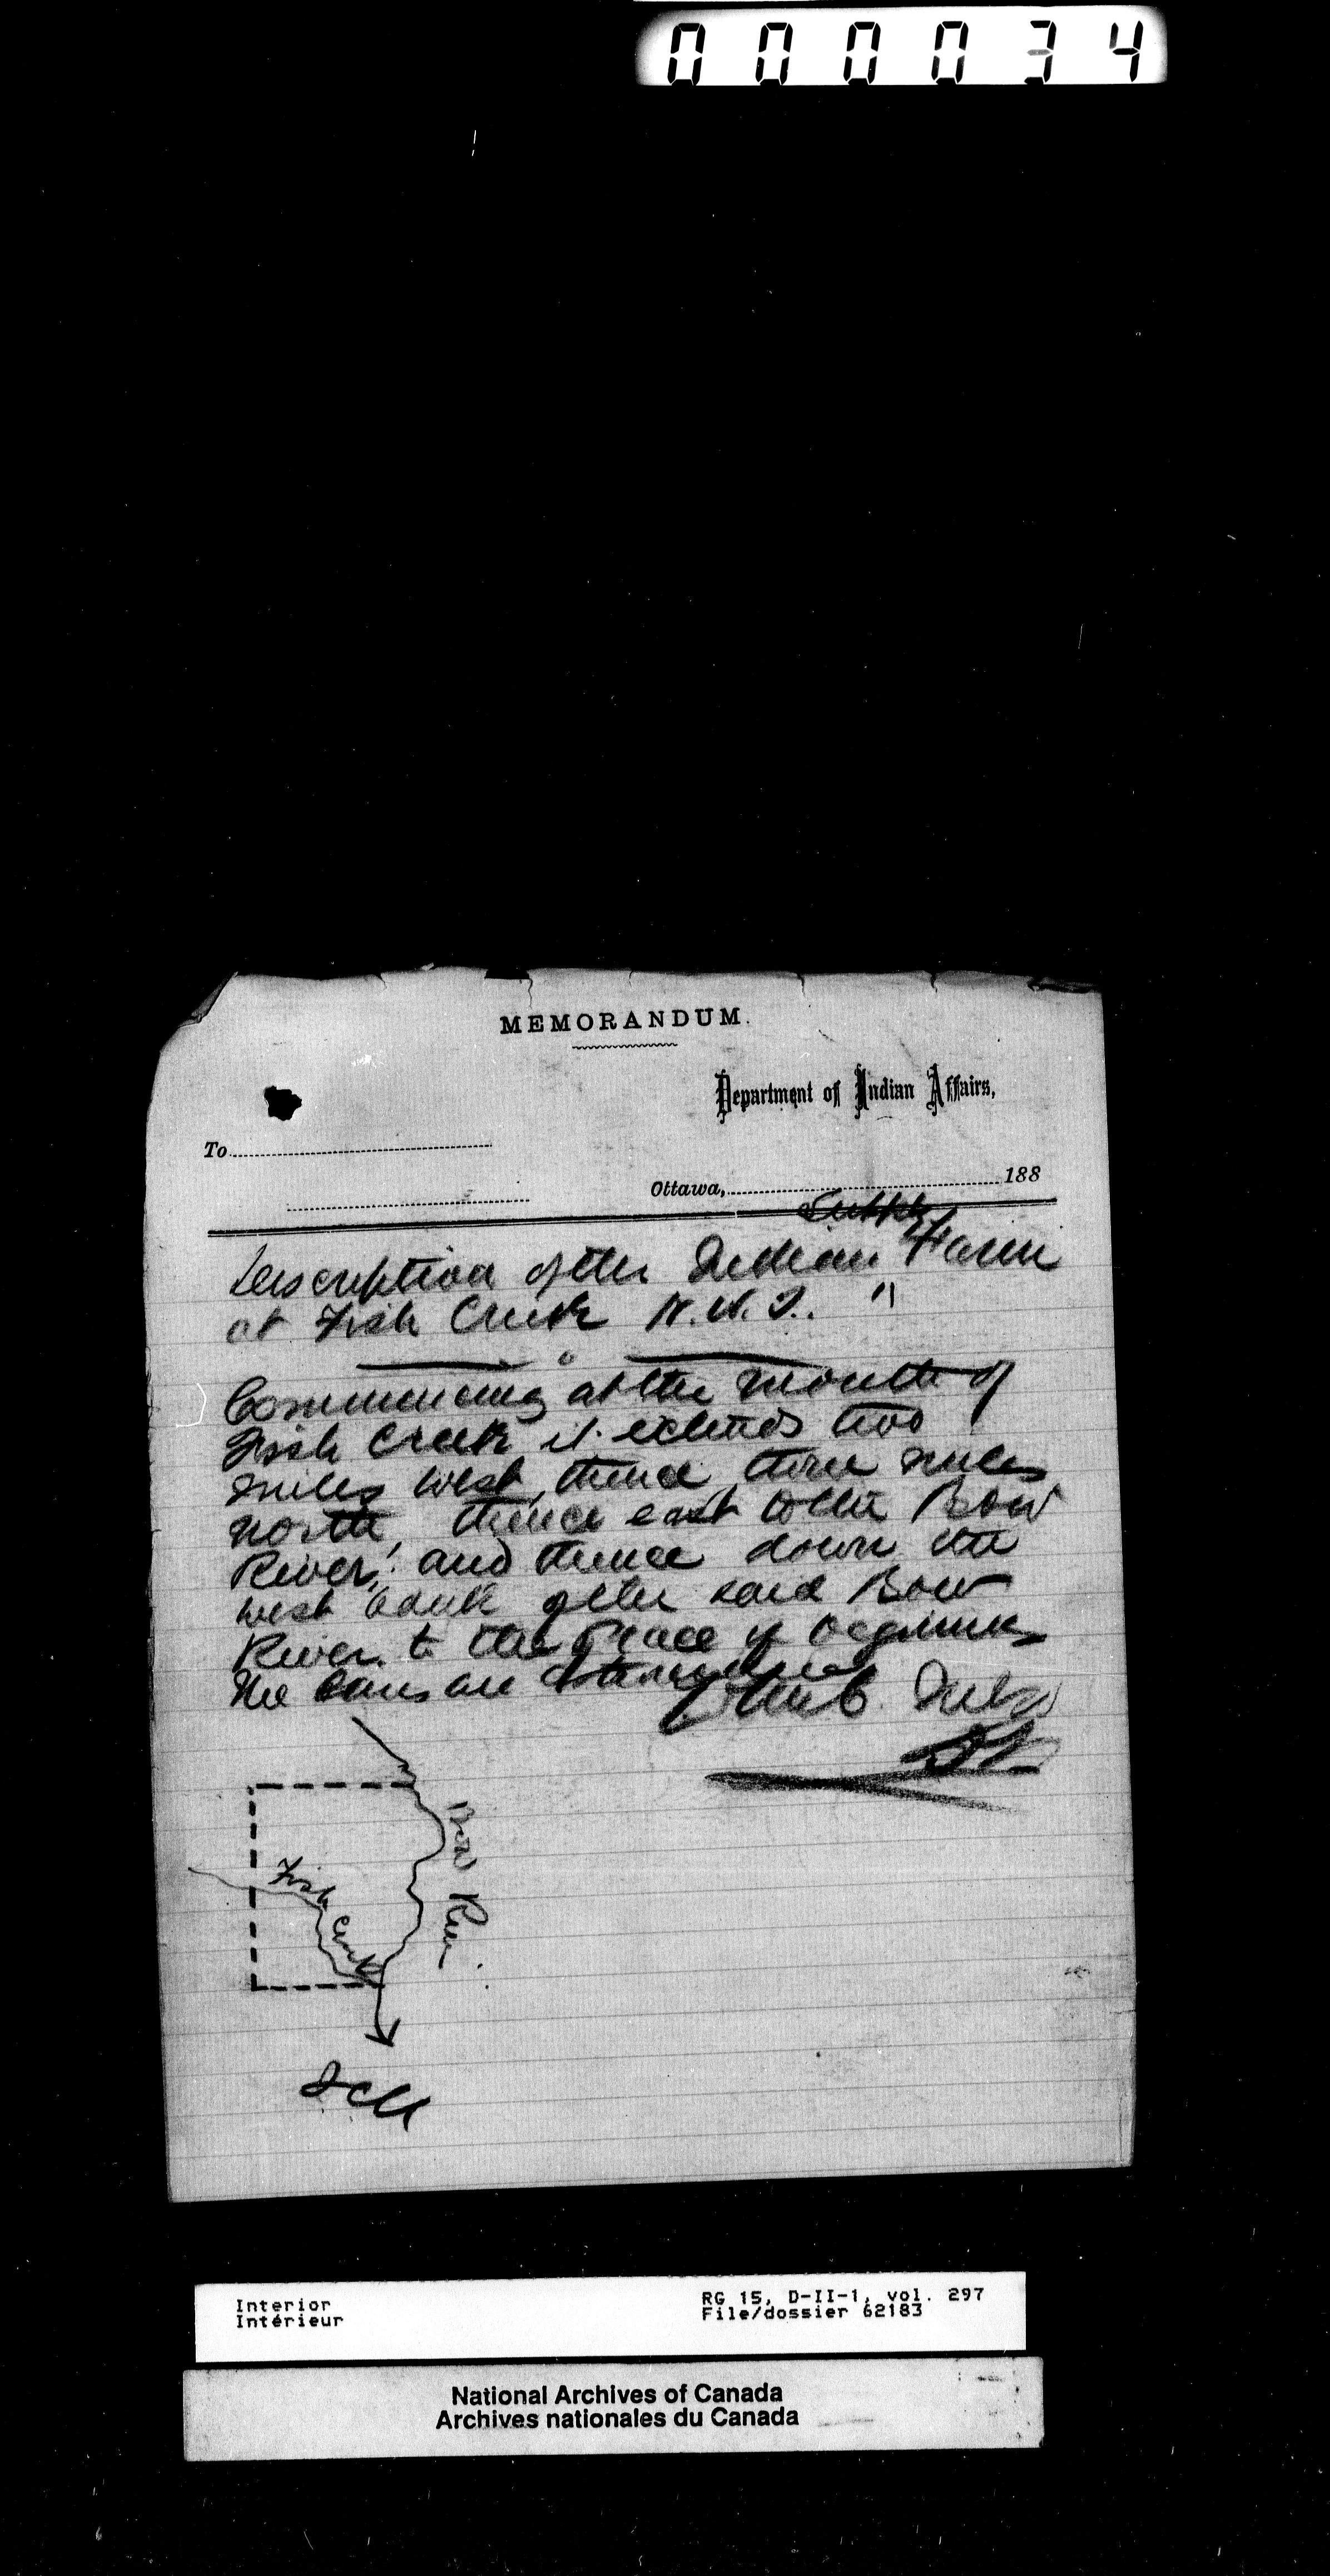 000034
MEMORANDUM.
Department of Indian Affairs,
To
Ottawa, 188
Supply
Description of the Indian Farm
at Fish Creek N.W.T. "
Commencing at the mouth of
Fish Creek it extends two
miles west, thence three miles
north, thence east to the Bow
River, and thence down the
west bank of the said Bow
River to the place of beginning
The
Fish Creek
Bow River
Interior
Intérieur
RG 15, D-II-1, vol. 297
File/dossier 62183
National Archives of Canada
Archives nationales du Canada